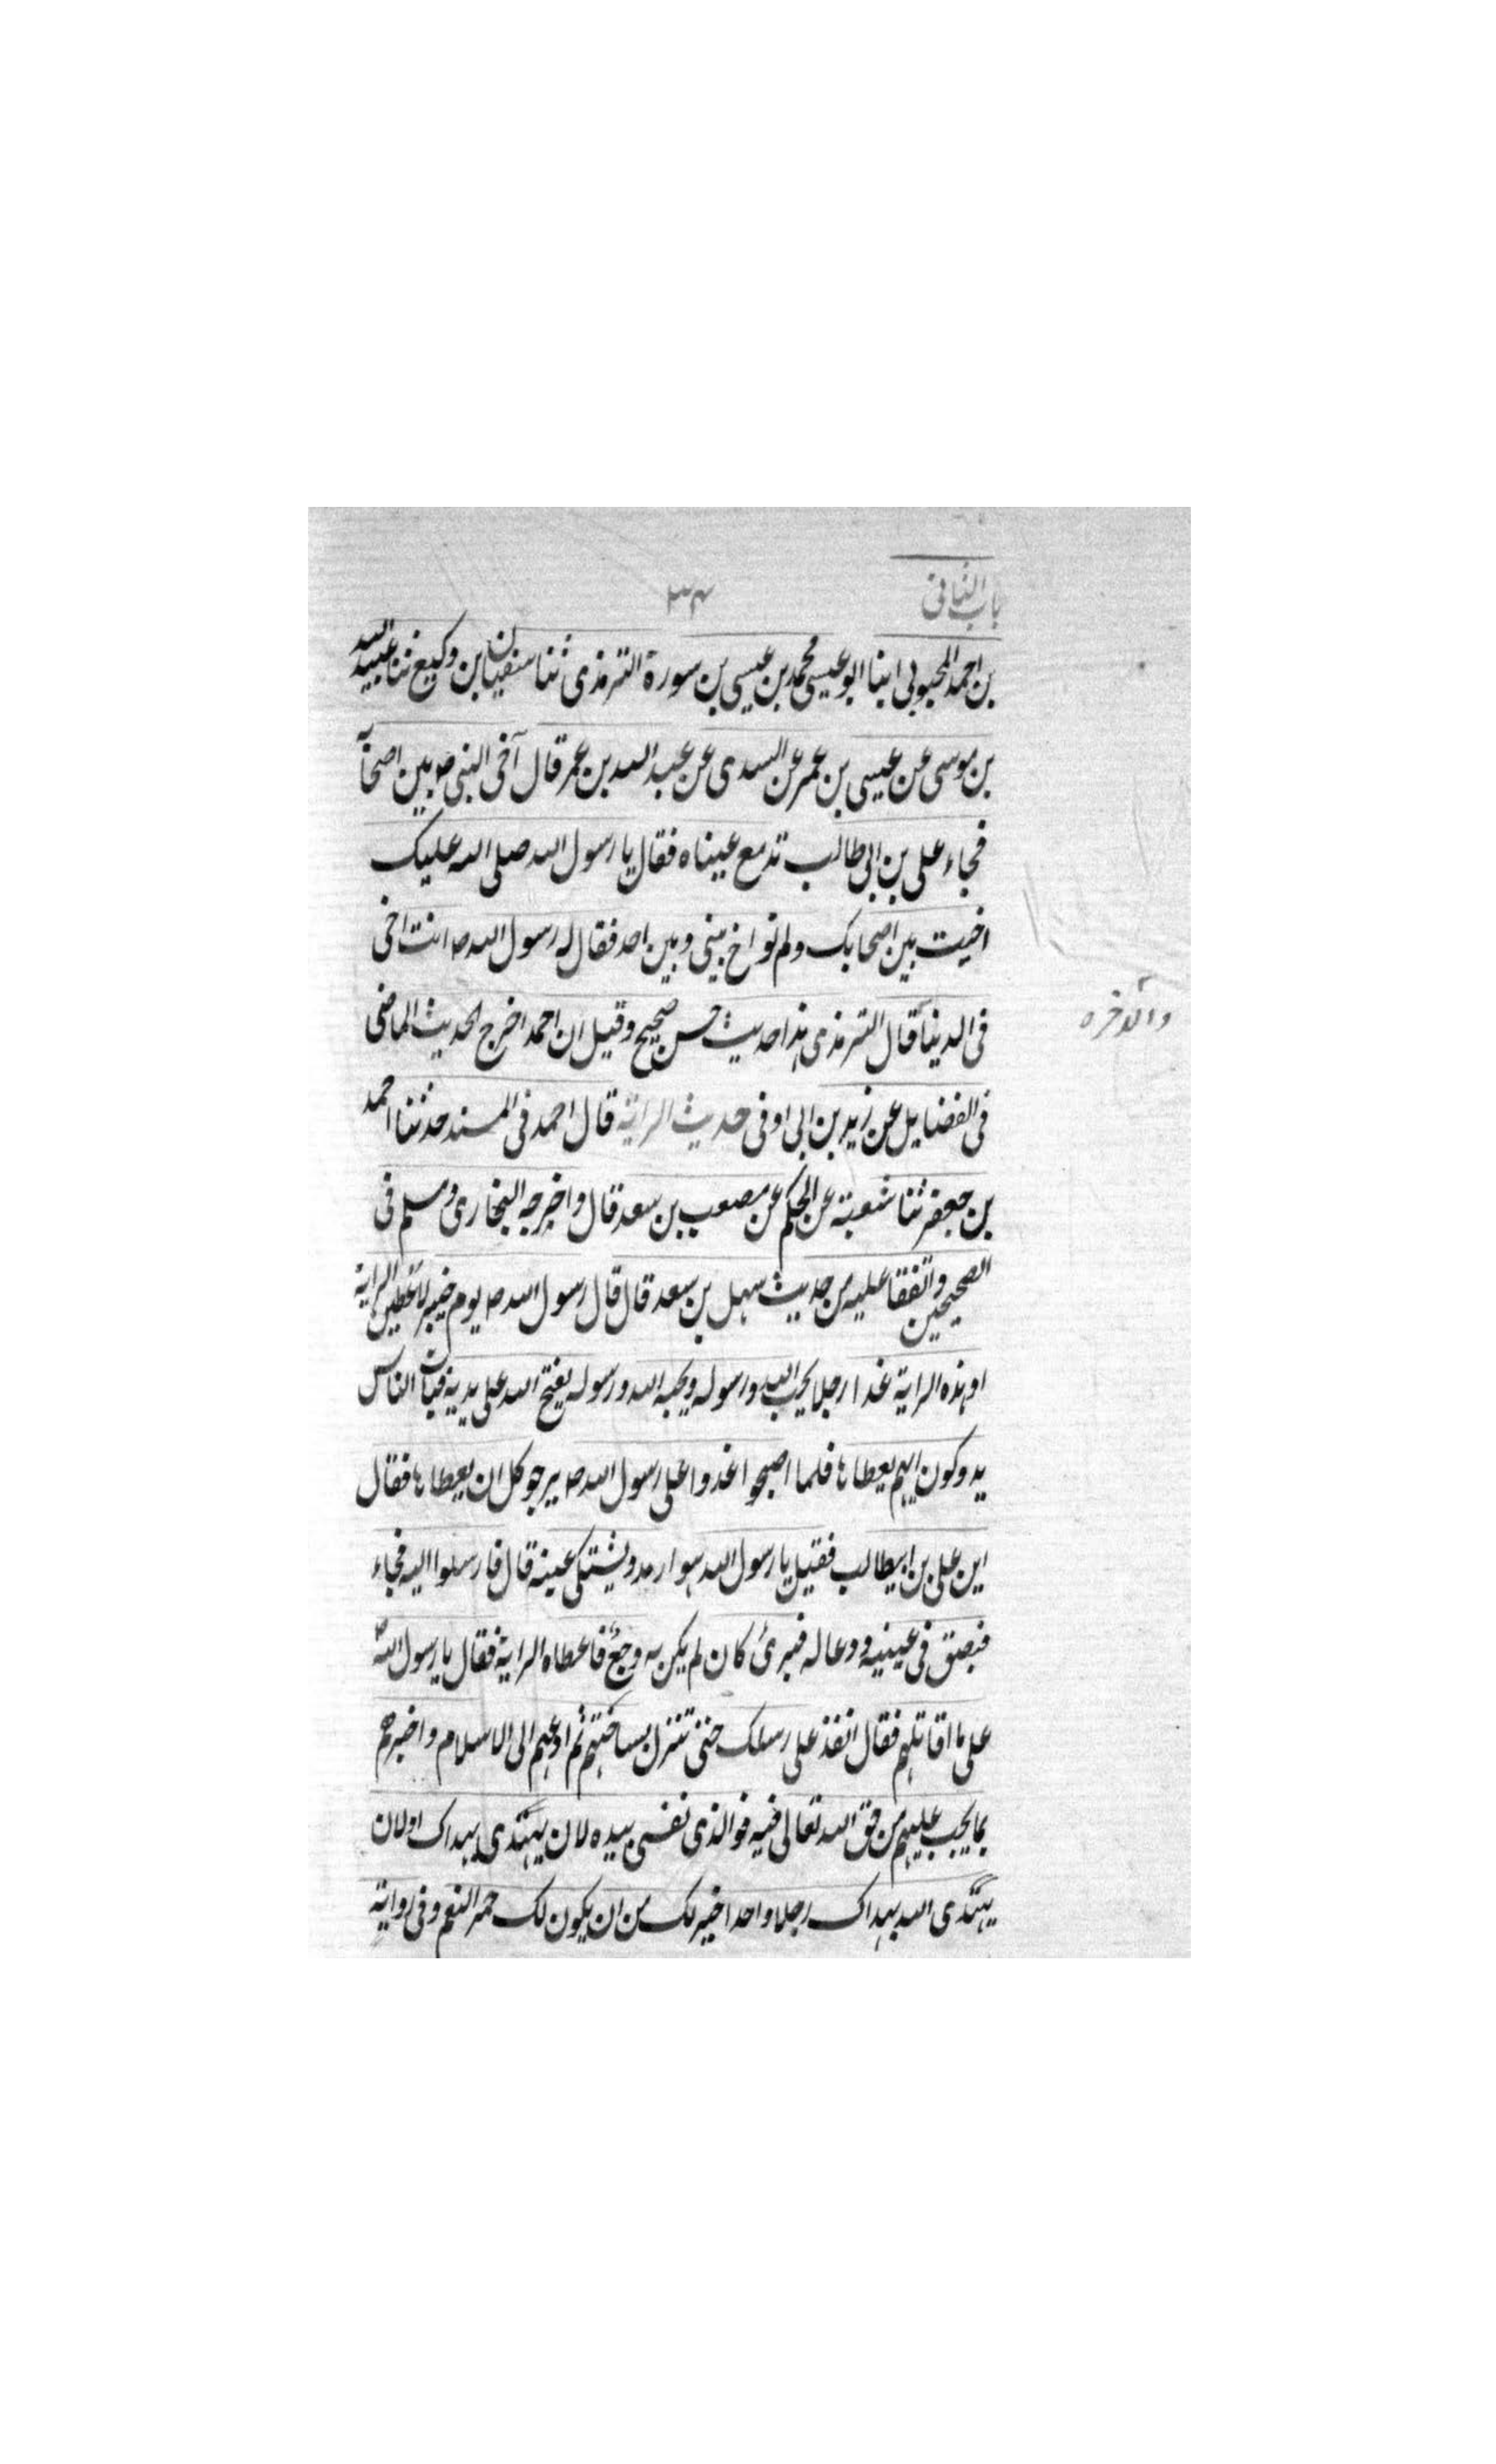 باب الثانی
۳۴
بن احمد المحبوبی ابنا ابو عیسی محمد بن عیسی بن سورة الترمذی ثنا سفیان بن وکیع ثنا عبید الله
بن موسی عن عیسی بن عمر عن السدی عن عبد الله بن عمر قال آخی النبی ص بین اصحابه
فجاء علی بن ابی طالب تدمع عیناه فقال یا رسول الله صلی الله علیک
اخیت بین اصحابک ولم تواخ بینی وبین احد فقال له رسول الله ص انت اخی
فی الدنیا قال الترمذی هذا حدیث حسن صحیح وقیل ان احمد اخرج الحدیث الماضی
والاخره
فی الفضایل عن زید بن ابی اوفی حدیث الرایة قال احمد فی المسند حدثنا احمد
بن جعفر ثنا شعبة عن الحکم عن مصعب بن سعد قال واخرجه البخاری ومسلم فی
الصحیحین واتفقا علیه من حدیث سهل بن سعد قال قال رسول الله ص یوم خیبر لاعطین الرایة
او هذه الرایة غدا رجلا یحب الله ورسوله ویحبه الله ورسوله یفتح الله علی یدیه فبات الناس
یدوکون ایهم یعطاها فلما اصبحوا غدوا علی رسول الله ص یرجو کل ان یعطاها فقال
این علی بن ابیطالب فقیل یا رسول الله هو ارمد ویشتکی عینه قال فارسلوا الیه فجاء
فبصق فی عینیه ودعا له فبرئ کان لم یکن به وجع فاعطاه الرایة فقال یا رسول الله ص
علی ما اقاتلهم فقال انفذ علی رسلک حتی تنزل بساحتهم ثم ادعهم الی الاسلام واخبرهم
بما یجب علیهم من حق الله تعالی فیه فوالذی نفسی بیده لان یهتدی بهداک او لان
یهتدی الله بهداک رجلا واحدا خیر لک من ان یکون لک حمر النعم وفی روایة